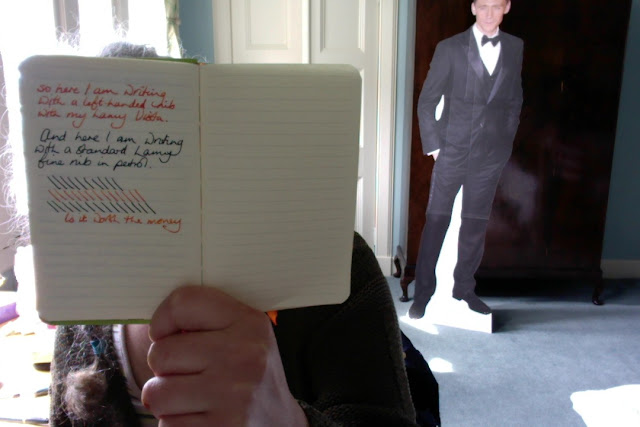 so here I am writing
with a left handed nib
with my Lamy Vista.
And here I am writing
with a standard Lamy
fine nib in petrol.
Is it worth the money